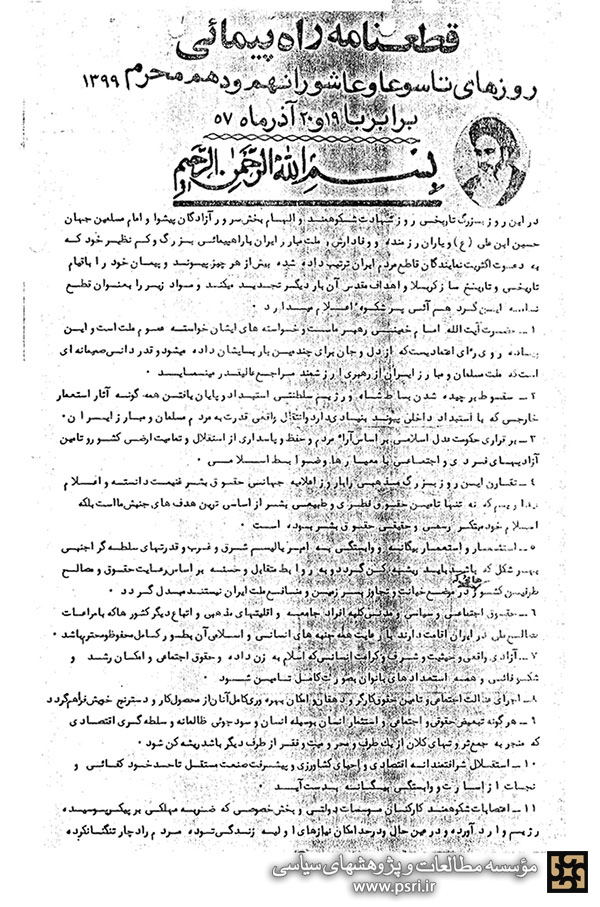 قطعنامه راه پیمائی
روزهای تاسوعا و عاشورا نهم و دهم محرم ۱۳۹۹
برابر با ۱۹ و ۲۰ آذر ماه ۵۷
بسم الله الرحمن الرحیم
در این روز بزرگ تاریخی روز شهادت شکوهمند و الهام بخش سرور آزادگان پیشوا و امام مسلمین جهان
حسین ابن علی (ع) و یاران رزمنده و وفادارش و ملت مبارز ایران با راهپیمائی بزرگ و کم نظیر خود که
به دعوت اکثریت نمایندگان قاطع مردم ایران ترتیب داده شده بیش از هر چیز پیوند و پیمان خود را با قیام
تاریخی و تاریخ ساز کربلا و اهداف مقدس آن بار دیگر تجدید میکند و مواد زیر را بعنوان قطع
نامه این گرد هم آئی پر شکوه اعلام میدارد ۰
۱ – حضرت آیت الله امام خمینی رهبر ماست و خواسته های ایشان خواسته عموم ملت است و این
رای اعتمادیست که از دل و جان برای چندمین بار بایشان داده میشود و قدر دانی صمیمانه ای
است که ملت مسلمان و مبارز ایران از رهبری ارزشمند مراجع عالیقدر مینماید ۰
۲ – سقوط بر چیده شدن بساط شاه و رژیم سلطنتی استبداد و پایان یافتن همه گونه آثار استعمار
خارجی که با استبداد داخلی پیوند بنیادی دارد و انتقال واقعی قدرت به مردم مسلمان و مبارز ایران ۰
۳ – بر قراری حکومت عدل اسلامی بر اساس آراء مردم و حفظ و پاسداری از استقلال و تمامیت ارضی کشور و تامین
آزادیهای فردی و اجتماعی با معیارها و ضوابط اسلامی ۰
۴ – تقارن این روز بزرگ مذهبی را با روز اعلامیه جهانی حقوق بشر غنیمت دانسته و اعلام
میداریم که نه تنها تامین حقوق فطری و طبیعی بشر از اساسی ترین هدف های جنبش ما است بلکه
اسلام خود مبتکر رسمی و حقیقی حقوق بشر بوده است ۰
۵ – استثمار و استعمار بیگانه و وابستگی به امپریالیسم شرق و غرب و قدرتهای سلطه گر اجنبی
بهر شکل که باشد باید ریشه کن گردد و به روابط متقابل و حسنه بر اساس رعایت حقوق و مصالح
طرفین کشورهائی که در موضع خیانت و تجاوز بسر زمین و منافع ملت ایران نیستند مبدل گردد
۶ – حقوق اجتماعی و سیاسی کلیه افراد جامعه و اقلیتهای مذهبی و اتباع دیگر کشورها که با مراعات
مصالح ملی در ایران اقامت دارند با رعایت همه جنبه های انسانی و اسلامی آن بطور کامل محفوظ و محترم باشد ۰
۷ – آزادی واقعی و حیثیت و شرف و کرامت انسانی که اسلام به زن داده و حقوق اجتماعی و امکان رشد و
شکوفائی و همه استعدادهای بانوان بصورت کامل تامین شود ۰
۸ – اجرای عدالت اجتماعی و تامین حقوق کارگر و دهقان و امکان بهره وری کامل آنان از محصول کار و دسترنج خویش فراهم گردد
۹ – هر گونه تبعیض حقوقی و اجتماعی و استثمار انسان بوسیله انسان و سود جوئی ظالمانه و سلطه گری اقتصادی
که منجر به جمع ثروتهای کلان از یک طرف و محرومیت و فقر از طرف دیگر باشد ریشه کن شود ۰
۱۰ – استقلال شرافتمندانه اقتصادی و احیای کشاورزی و پیشرفت صنعت مستقل تا حد خود کفائی و
نجات از اسارت و وابستگی بیگانه بدست آید ۰
۱۱ – اعتصابات شکوهمند کارکنان موسسات دولتی و بخش خصوصی که ضربه مهلکی بر پیکر پوسیده
رژیم وارد آورده و در عین حال و در حد امکان نیازهای اولیه زندگی توده مردم را دچار تنگنا نکرده
مؤسسه مطالعات و پژوهشهای سیاسی
www.psri.ir